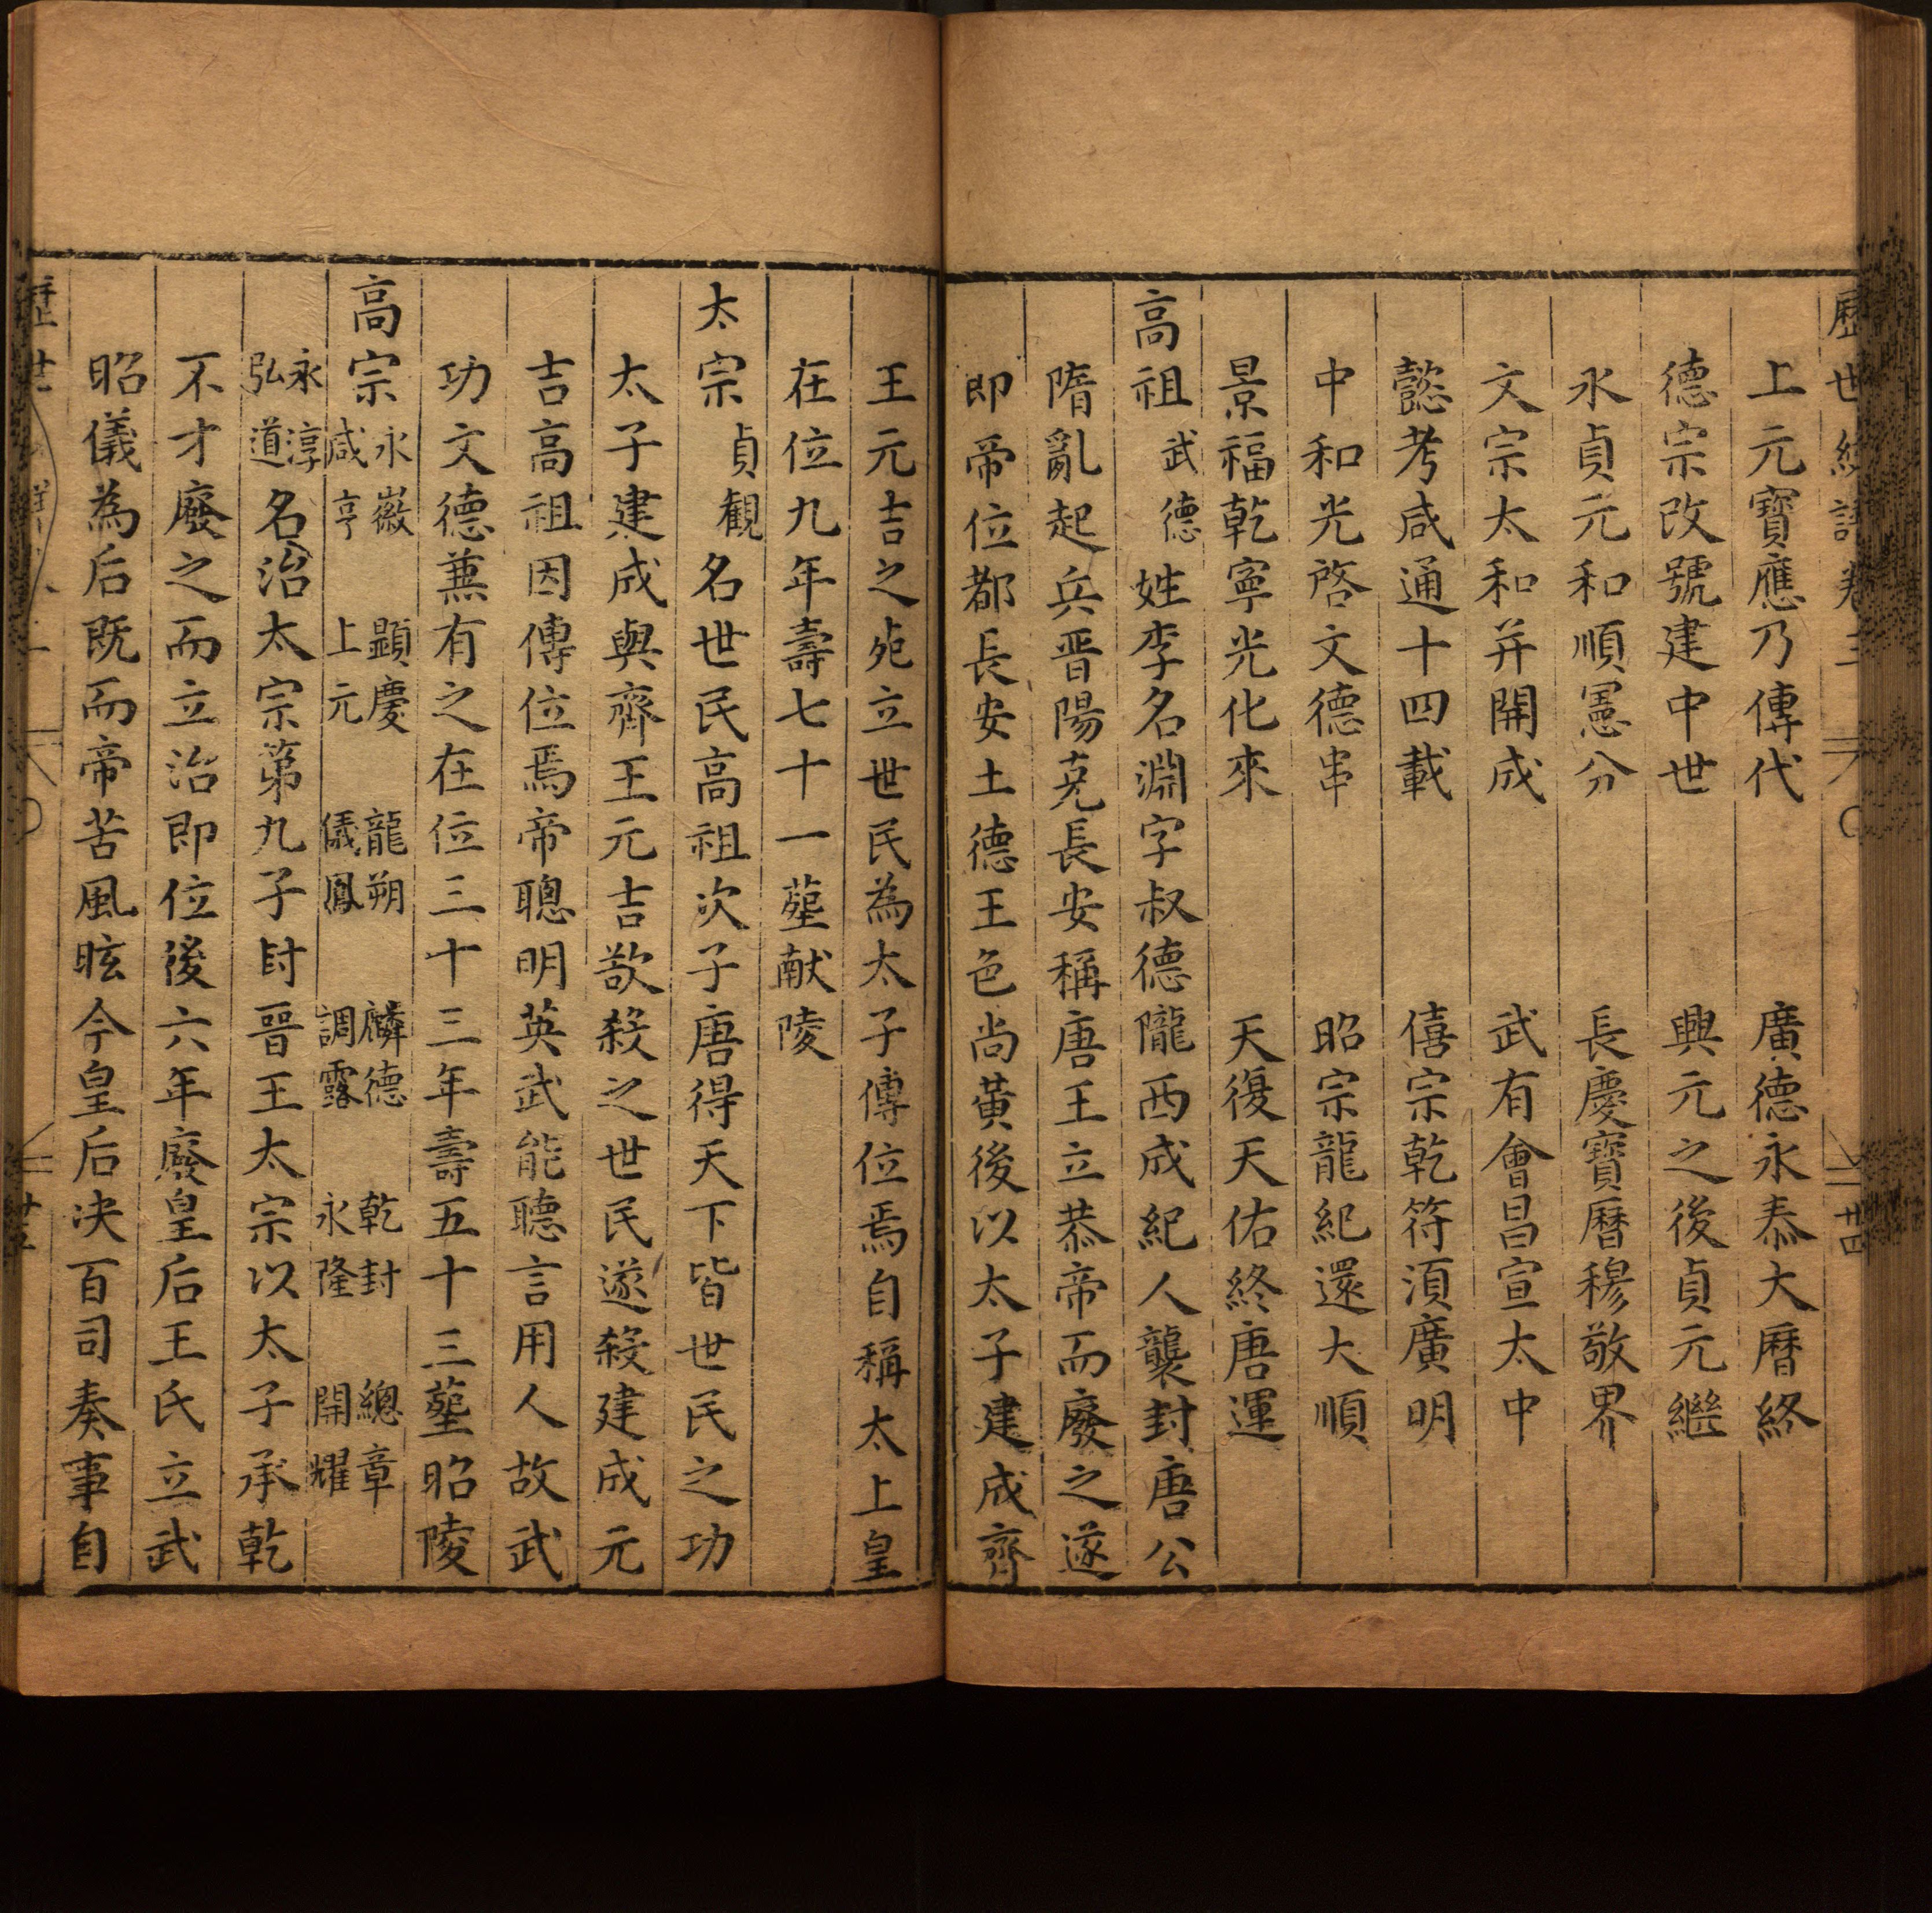 歷世統譜卷三 廿四
上元寶應乃傳代　廣德永泰大曆終
德宗改號建中世　興元之後貞元繼
永貞元和順憲分　長慶寶曆穆敬界
文宗太和并開成　武有會昌宣太中
懿考咸通十四載　僖宗乾符湏廣明
中和光啓文德串　昭宗龍紀還大順
景福乾寧光化來　天復天佑終唐運
高祖武德姓李名淵字叔德隴西成紀人襲封唐公
隋亂起兵晋陽克長安稱唐王立恭帝而廢之遂
即帝位都長安土德王色尚黃後以太子建成齊
王元吉之死立世民為太子傳位焉自稱太上皇
在位九年壽七十一塟献陵
太宗貞觀名世民高祖次子唐得天下皆世民之功
太子建成與齊王元吉欲殺之世民遂殺建成元
吉高祖因傳位焉帝聰明英武能聽言用人故武
功文德兼有之在位三十三年壽五十三塟昭陵
高宗永徽　顯慶　龍朔　麟德　乾封　總章
咸亨　上元　儀鳳　調露　永隆　開耀
永淳弘道名治太宗第九子封晉王太宗以太子承乾
不才廢之而立治即位後六年廢皇后王氏立武
昭儀為后既而帝苦風眩令皇后决百司奏事自
歷世 廿五